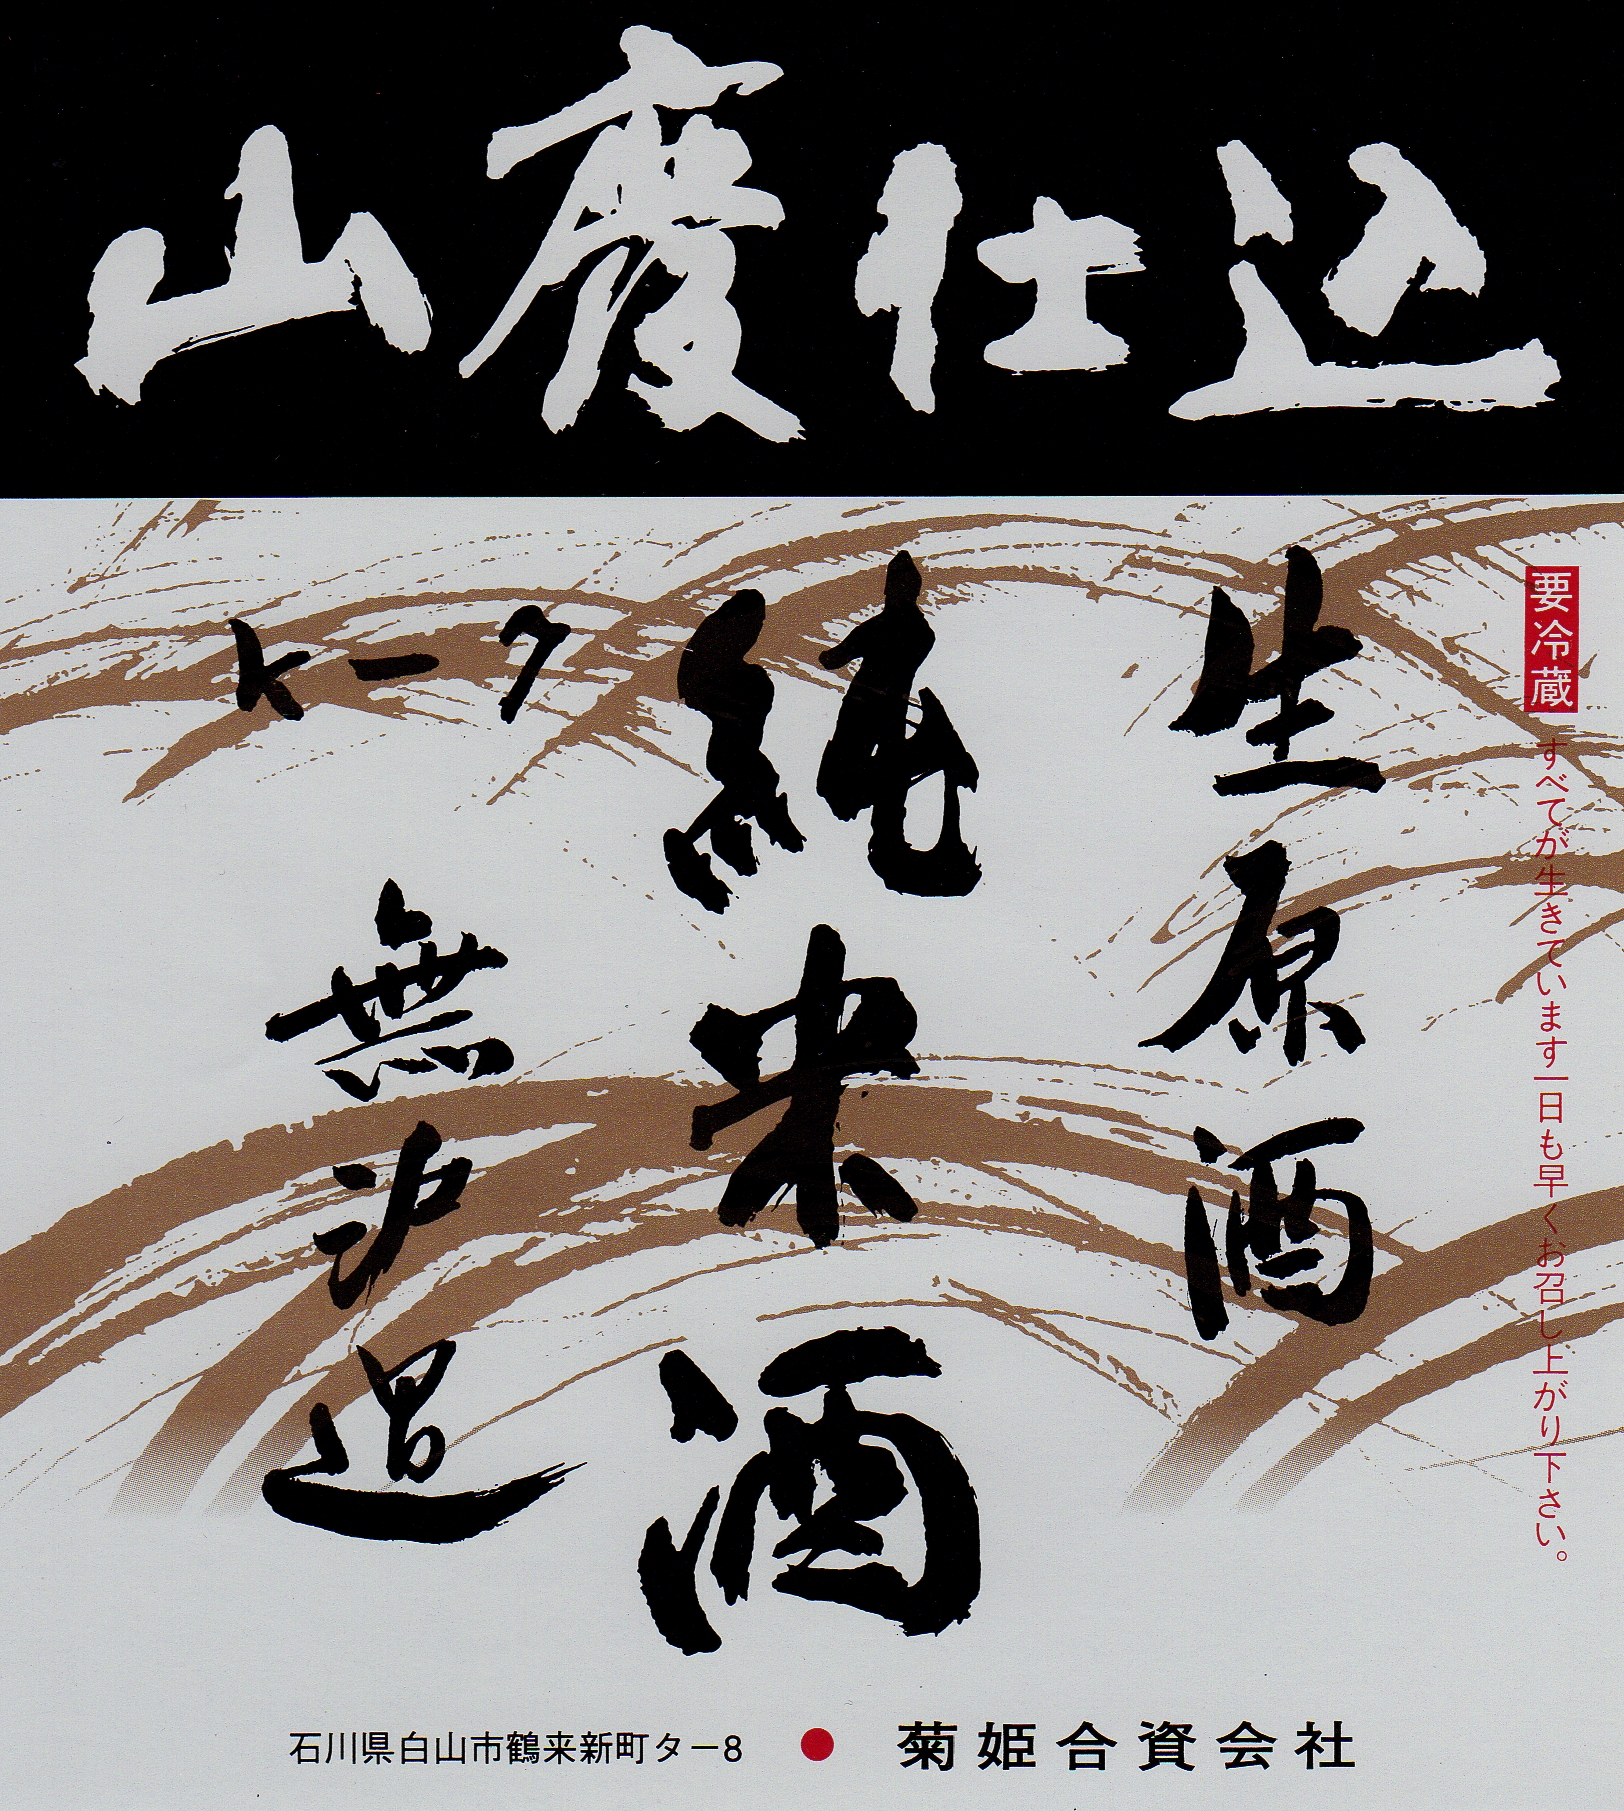 山廢仕込
要冷蔵 すべてが生きています一日も早くお召し上がり下さい。
生原酒
純米酒
k-7
無沪過
石川県白山市鶴来新町タ－8 ● 菊姫合資会社